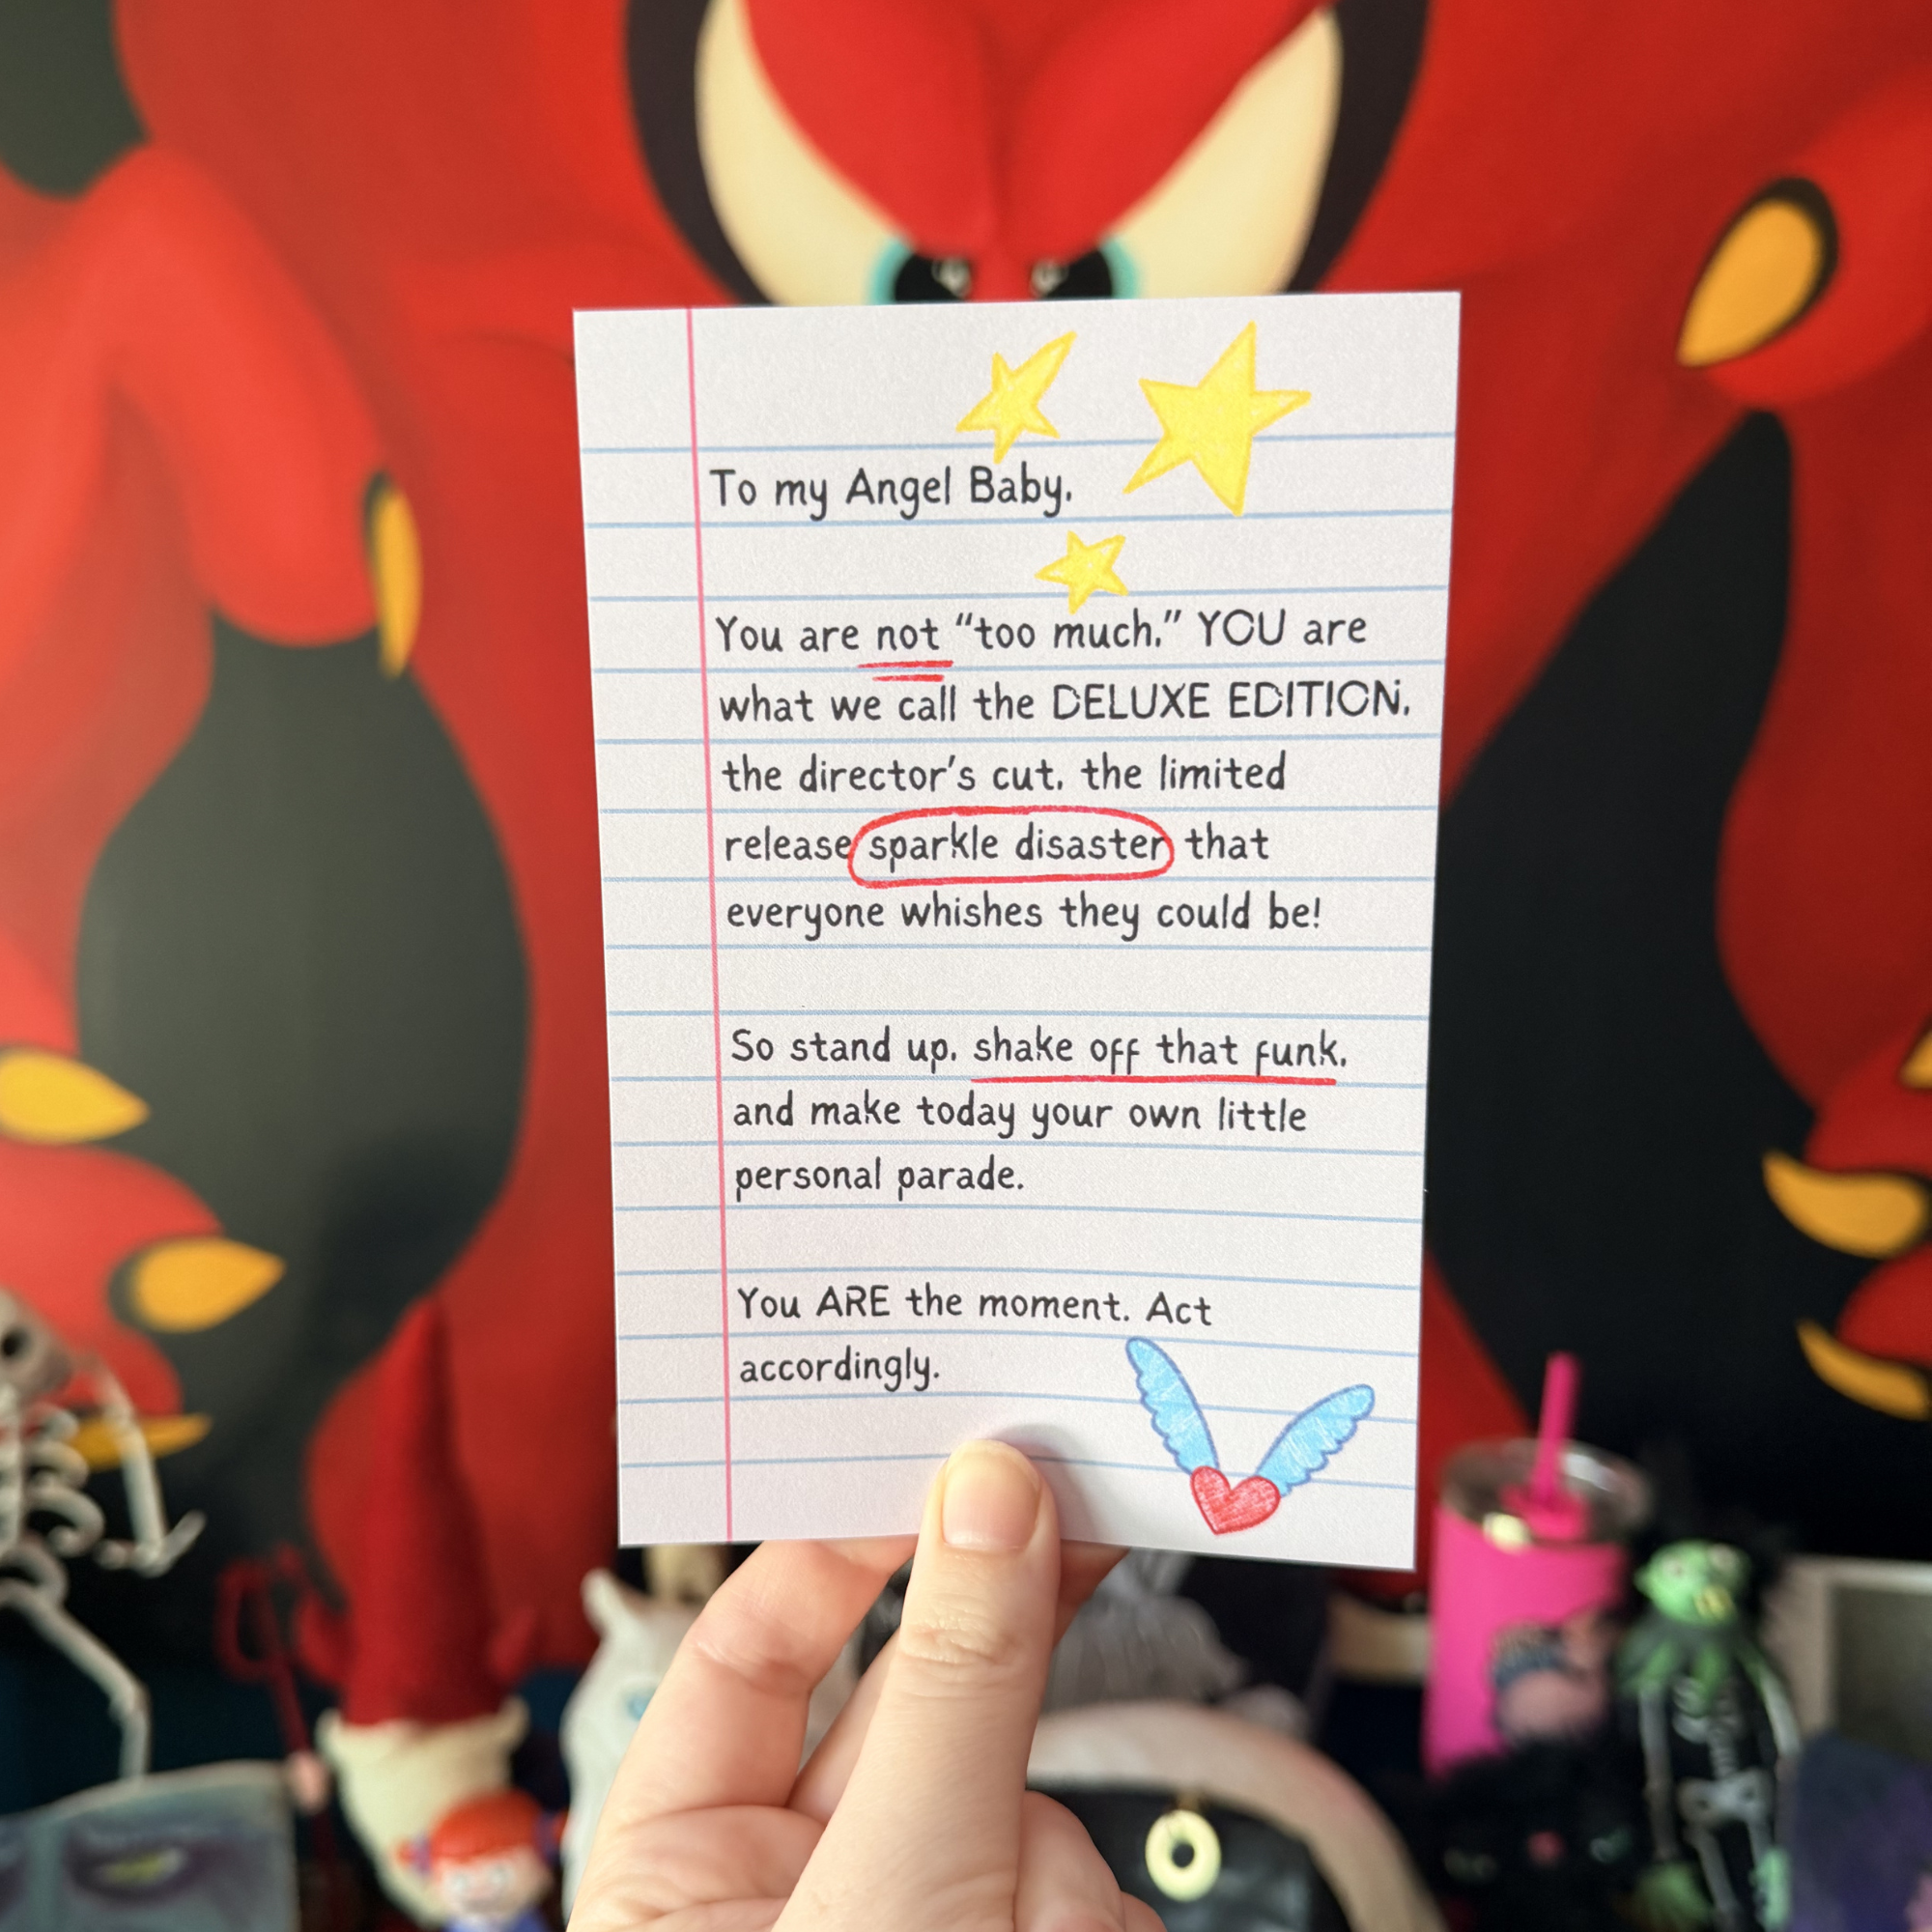 To my Angel Baby,
You are not “too much.” YOU are
what we call the DELUXE EDITION,
the director’s cut, the limited
release sparkle disaster that
everyone whishes they could be!
So stand up, shake off that funk,
and make today your own little
personal parade.
You ARE the moment. Act
accordingly.